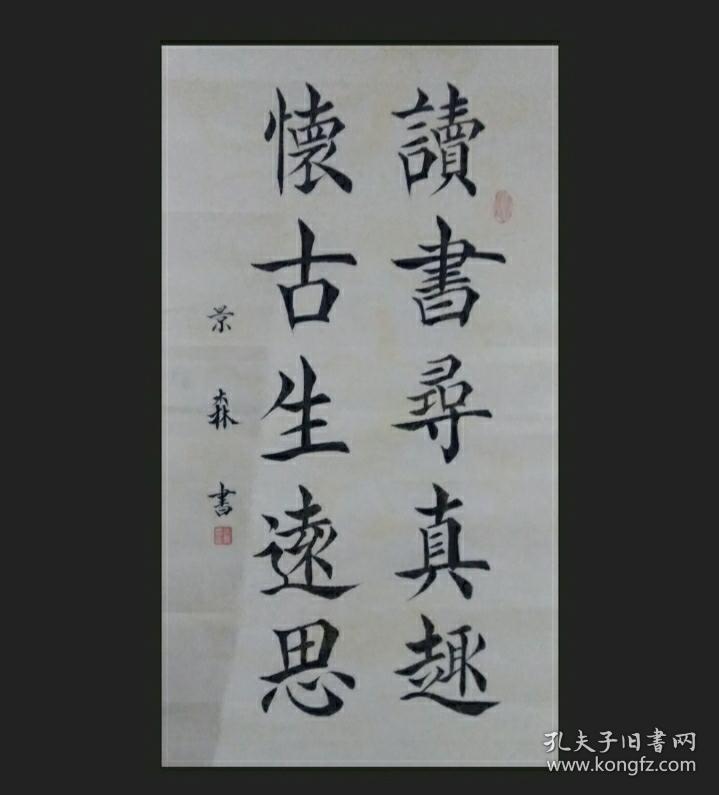 讀書尋真趣
懷古生遠思
景森書
孔夫子旧書网
www.kongfz.com